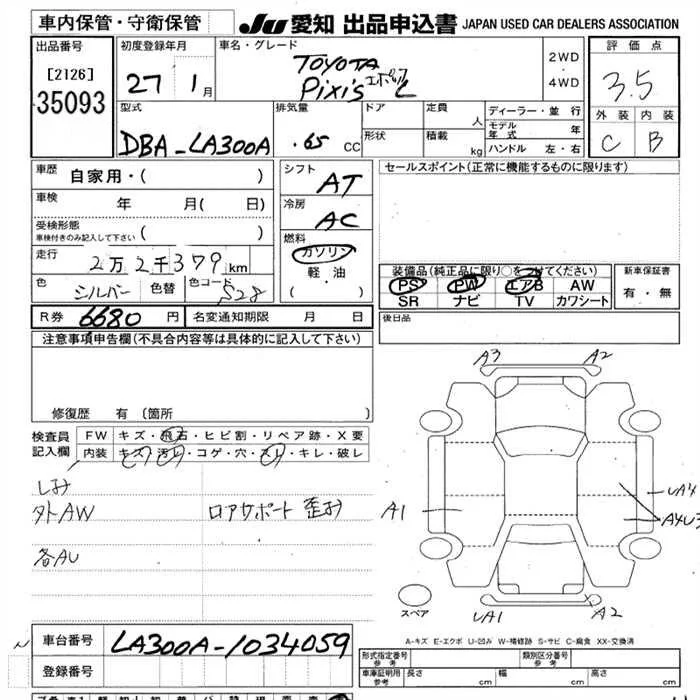 車内保管・守衛保管
JU 愛知 出品申込書 JAPAN USED CAR DEALERS ASSOCIATION
出品番号
[2126]
35093
初度登録年月
27 1月
車名・グレード
TOYOTA
Pixis エポック L
2WD
・
4WD
評価点
3.5
外装 内装
C B
型式
DBA-LA300A
排気量
.65 CC
ドア
形状
定員 人
積載 kg
ディーラー・並行
モデル年式 年
ハンドル 左・右
車歴 自家用・( )
車検 年 月( 日)
受検形態
車検付きのみ記入して下さい ( )
走行 2万2千379km
色 シルバー 色替 色コード S28
シフト AT
冷房 AC
燃料
ガソリン
軽・油
( ・ )
セールスポイント(正常に機能するものに限ります)
装備品(純正品に限り○をつけてください)
PS PW エアB AW
SR ナビ TV カワシート
新車保証書
有・無
R券 6680円 名変通知期限 月 日
後日品
注意事項申告欄(不具合内容等は具体的に記入して下さい)
修復歴 有(箇所 )
検査員記入欄
FW キズ・飛石・ヒビ割・リペア跡・X要
内装 キズ・汚レ・コゲ・穴・スレ・キレ・破レ
しみ
外AW ロアサポート 歪み
各AU
A3 A2
A1
UA4
A4U3
UA1 A2
スペア
A-キズ E-エクボ U-凹み W-補修跡 S-サビ C-腐食 XX-交換済
車台番号 LA300A-1034059
登録番号
形式指定番号 参考
類別区分番号 参考
車庫証明用 参考 長さ cm 幅 cm 高さ cm